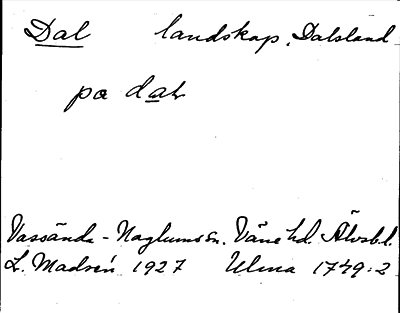 Dal landskap, Dalsland
på dal
Vassända-Naglums sn. Väne hd. Älvsb.l.
L. Madsén 1927 Ulma 1749:2